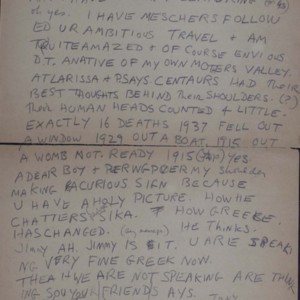 oh yes. I HAVE MESCHERS FOLLOW
ED UR AMBITIOUS TRAVEL & AM
QUITE AMAZED & OF COURSE ENVIOUS
D.T. A NATIVE OF MY OWN MOTERS VALLEY,
AT LARISSA & PSAYS CENTAURS HAD THEIR
BEST THOUGHTS BEHIND THEIR SHOULDERS. (?)
THEIR HUMAN HEADS COUNTED & LITTLE.
EXACTLY 16 DEATHS 1937 FELL OUT
A WINDOW 1929 OUT A BOAT, 1915 OUT
A WOMB NOT. READY 1915 YES
A DEAR BOY & MY SHOULDER
MAKING A CURIOUS SIGN BECAUSE
U HAVE A HOLY PICTURE. HOW HE
CHATTERS SIKA. HOW GREECE
HAS CHANGED. HE THINKS.
JIMMY AH. JIMMY IS IT. U ARE SPEAK
ING VERY FINE GREEK NOW.
WE ARE NOT SPEAKING ARE THINK
ING SO U YOU FRIENDS AYS.